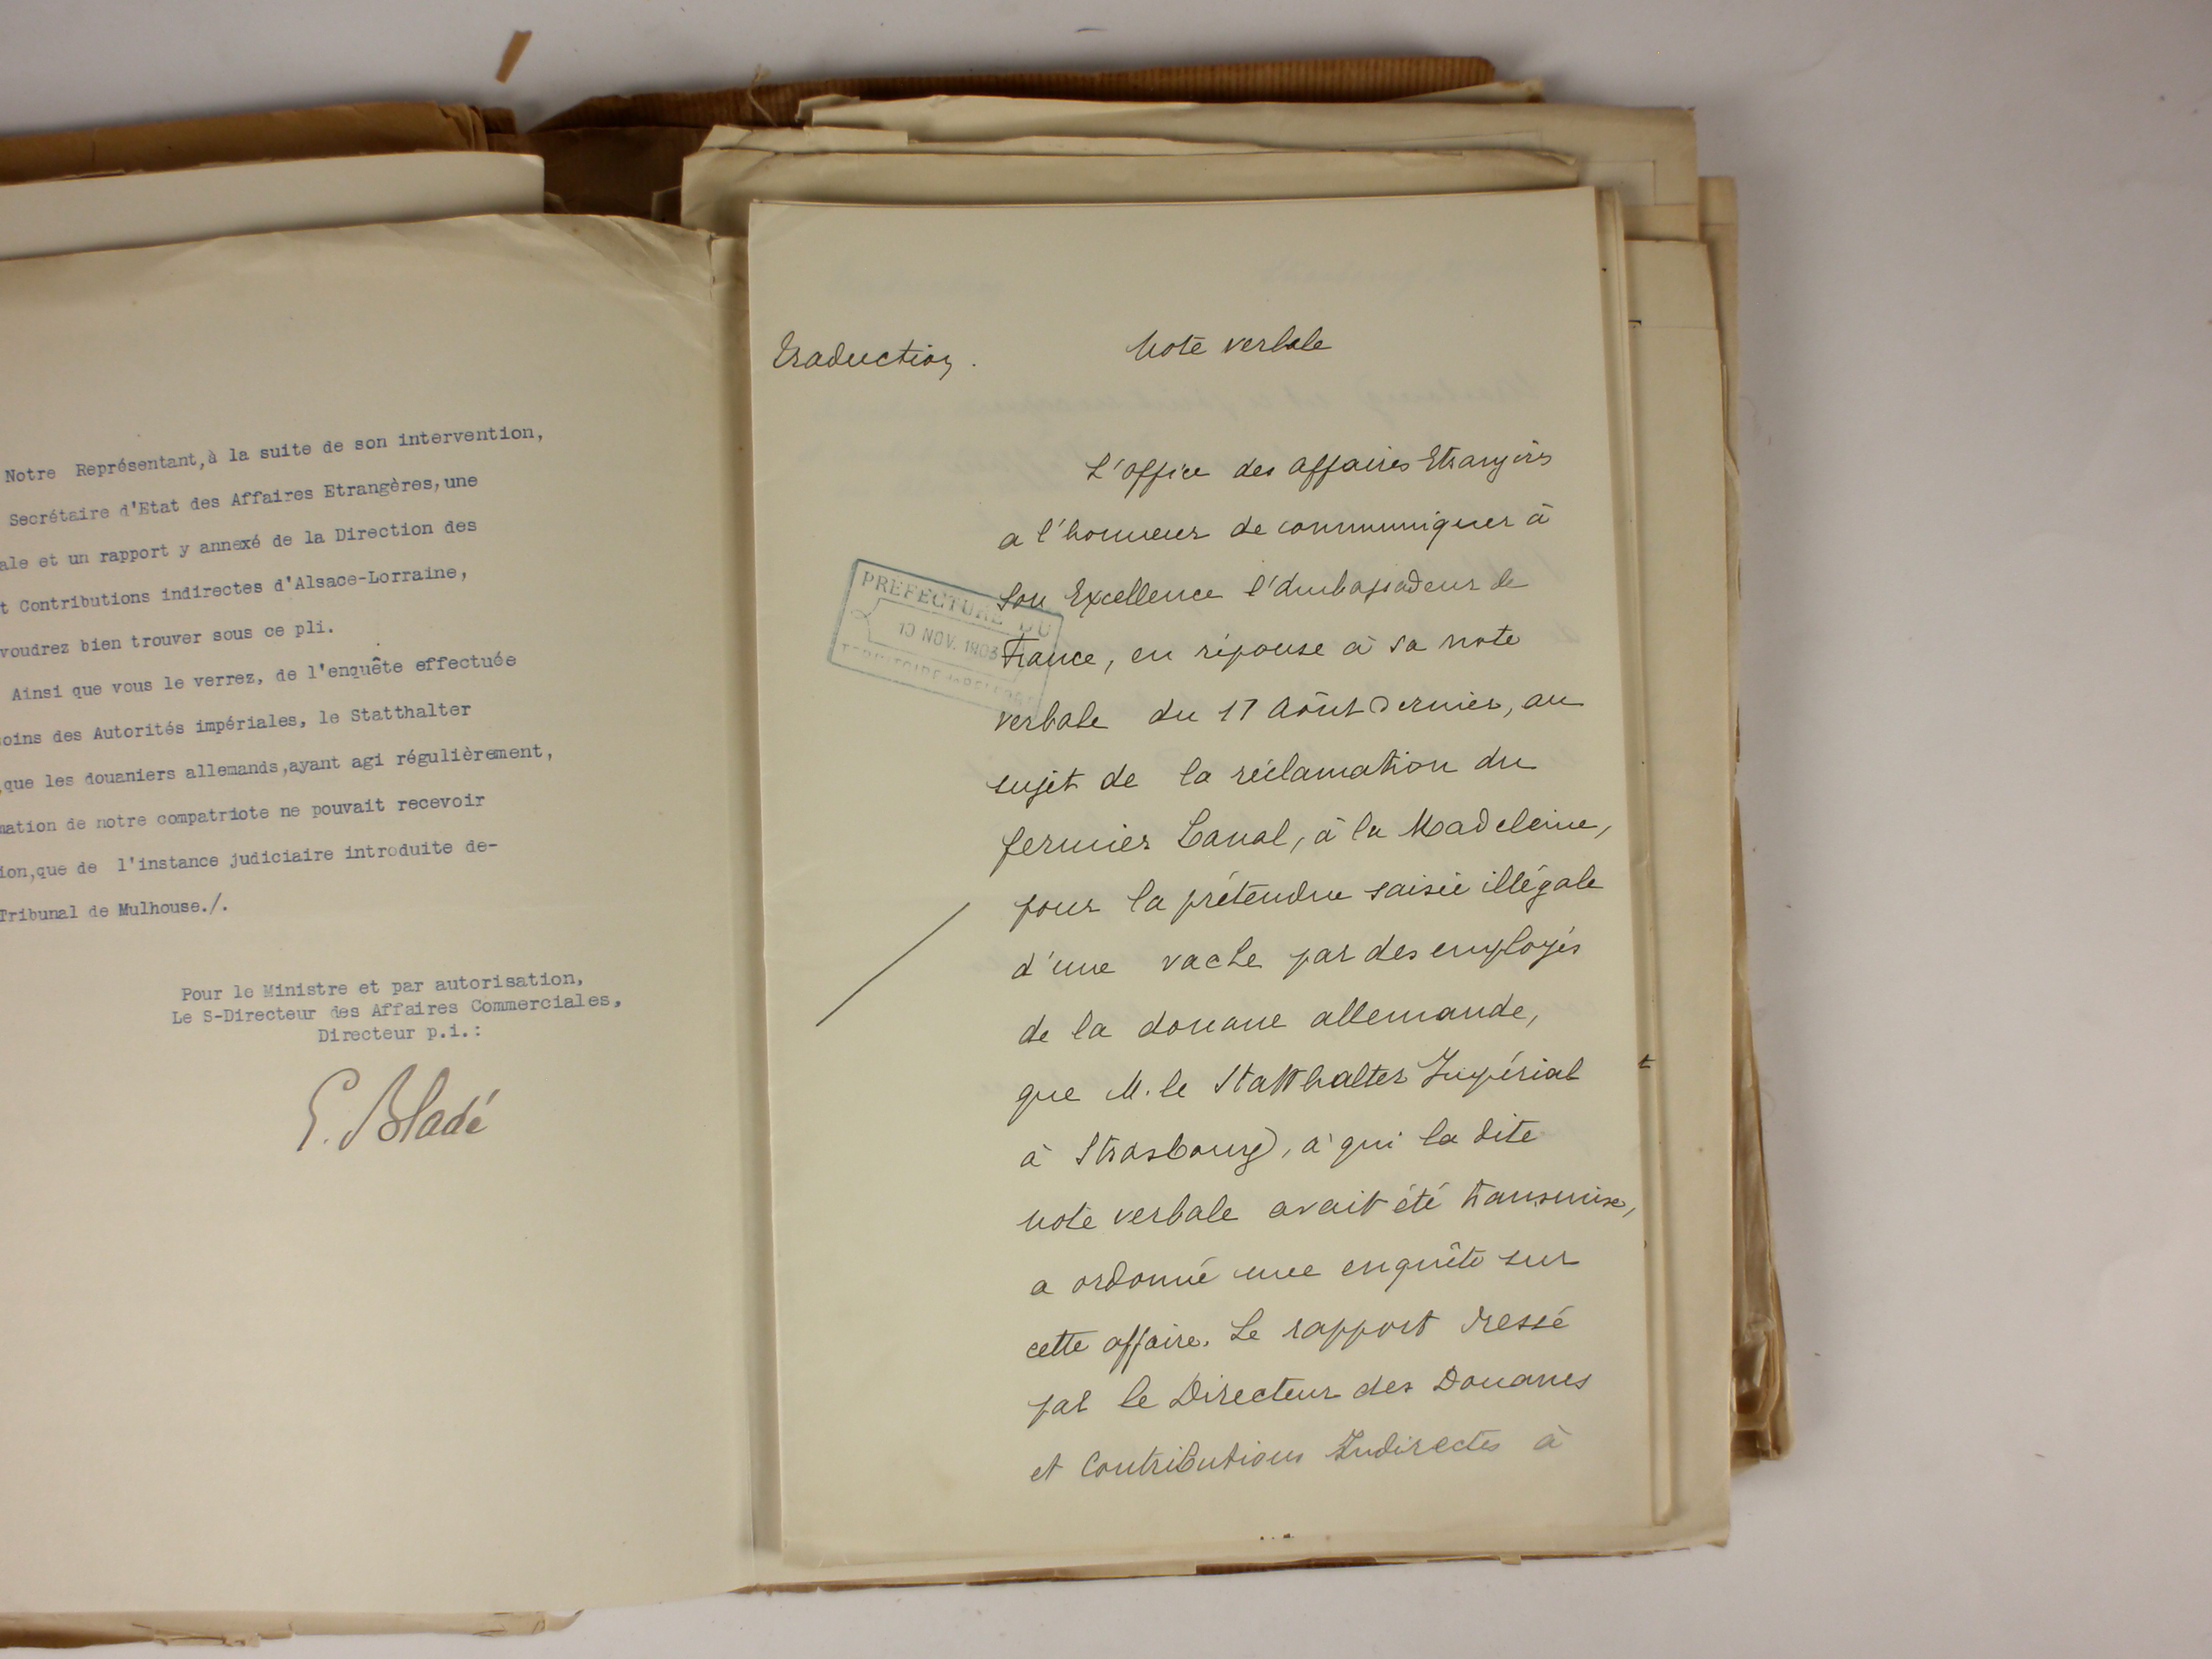 Notre Représentant, à la suite de son intervention,
Secrétaire d'Etat des Affaires Etrangères, une
ale et un rapport y annexé de la Direction des
t Contributions indirectes d'Alsace-Lorraine,
voudrez bien trouver sous ce pli.
Ainsi que vous le verrez, de l'enquête effectuée
oins des Autorités impériales, le Statthalter
,que les douaniers allemands, ayant agi régulièrement,
mation de notre compatriote ne pouvait recevoir
ion, que de l'instance judiciaire introduite de-
Tribunal de Mulhouse./.
Pour le Ministre et par autorisation,
Le S-Directeur des Affaires Commerciales,
Directeur p.i.:
Bladé
Traduction.
Note verbale
L'Office des Affaires Etrangères
a l'honneur de communiquer à
Son Excellence l'Ambassadeur de
France, en réponse à sa note
verbale du 17 Août dernier, au
sujet de la réclamation du
fermier Canal, à la Madeleine,
pour la prétendue saisie illégale
d'une vache par des employés
de la douane allemande,
que M. le Statthalter Impérial
à Strasbourg, à qui la dite
note verbale avait été transmise,
a ordonné une enquête sur
cette affaire. Le rapport dressé
par le Directeur des Douanes
et Contributions Indirectes à
PREFECTURE DU
10 NOV. 1903